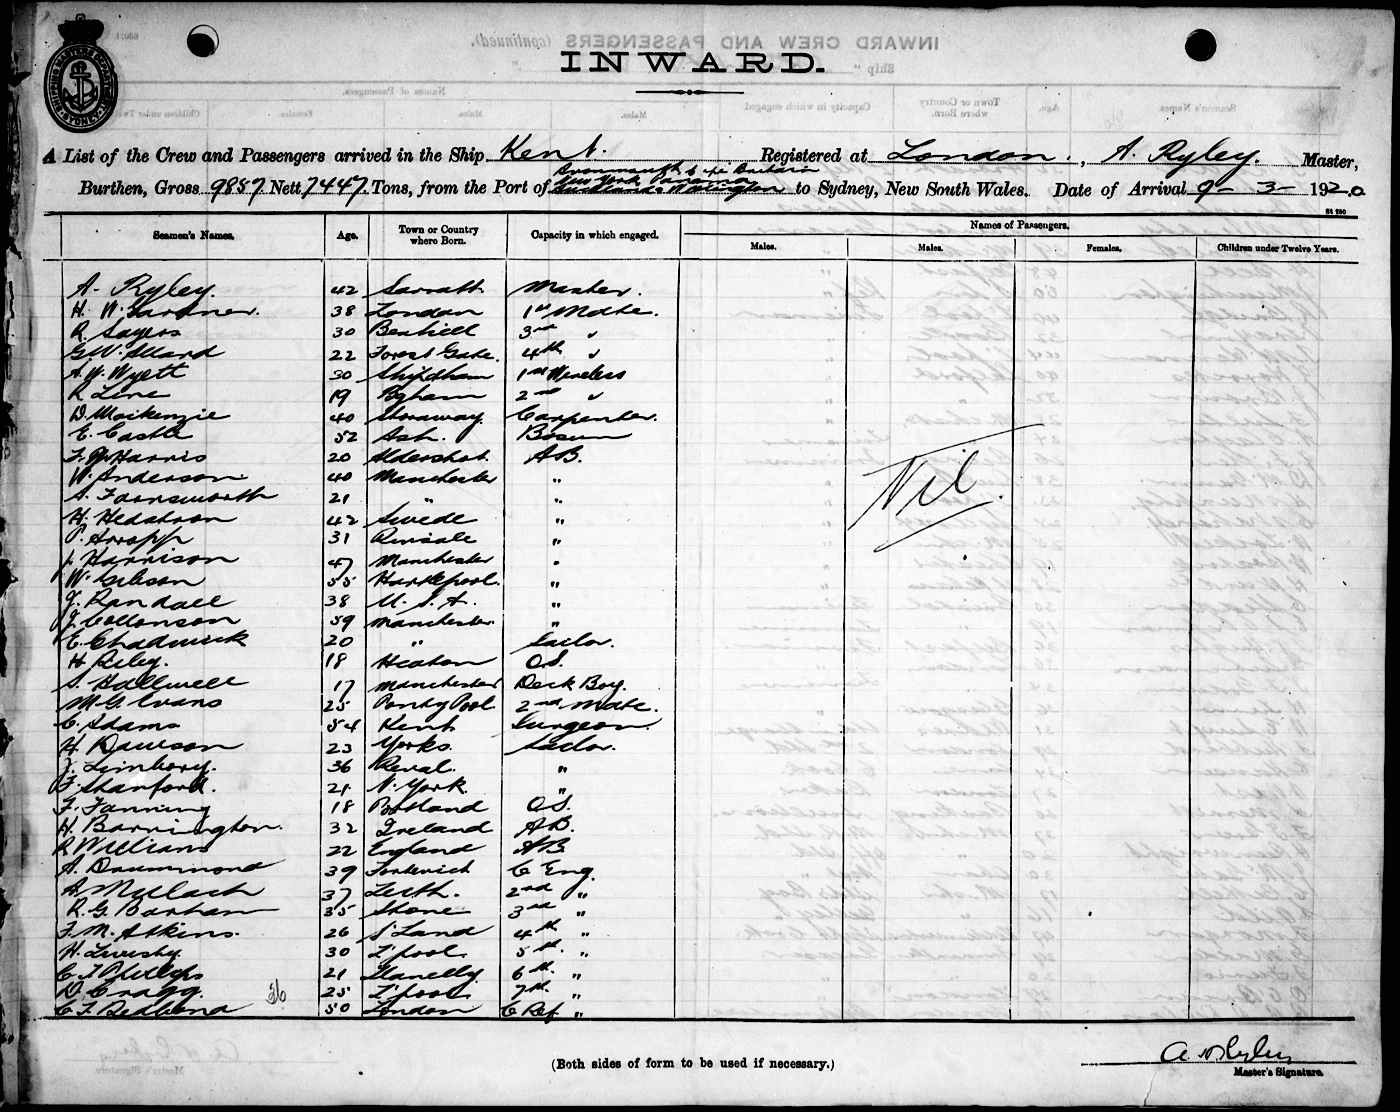 SHIPPING MASTERS DEPARTMENT SYDNEY
INWARD.
A List of the Crew and Passengers arrived in the Ship Kent. Registered at London., A. Ryley. Master,
Burthen, Gross 9857 Nett 7447 Tons, from the Port of to Sydney, New South Wales. Date of Arrival 9 - 3 - 1920
Seamen's Names. Age. Town or Country where Born. Capacity in which engaged. Names of Passengers.
Males. Males. Females. Children under Twelve Years.
A. Ryley. 42 Sarratt Master.
H. W. Gardner. 38 London 1st Mate.
R. Sayers 30 Bexhill 3rd "
G. W. Allard 22 Forest Gate. 4th "
A. W. Wyett 30 Shipdham 1st Wireless
R. Line 19 2nd "
D. Mackenzie 40 Carpenter.
E. Castle 52 Ash. Bosun
Harris 20 Aldershot AB.
W. Anderson. 40 Manchester "
A. Farnsworth 21 " "
H. 42 Swede "
P. 31 Kinsale "
J. Harrison 47 Manchester "
W. Gibson 55 Hartlepool. "
J. Randall 38 U. S. A. "
J. Collonson 59 Manchester. "
E. Chadwick 20 " Sailor.
H. Riley. 18 Heaton O.S.
S. Halliwell 17 Manchester Deck Boy.
M. G. Evans 25 Ponty Pool 2nd Mate.
C. Adams 54 Kent Surgeon.
H. Dawson 23 Yorks. Sailor.
36 Reval. "
F. Stanford. 21 N. York. "
F. Fanning 18 Portland O.S.
H. Barrington. 32 Ireland AB.
R. Williams 22 England AB
A. Drummond 39 C Eng.
37 Leith. 2nd "
R. G. Barham 35 Stone 3rd "
F. M. Atkins. 26 S'Land 4th "
H. Livesby 30 L'pool 5th "
C. J. Phillips 21 Llanelly 6th "
D. Cragg. 25 L'pool 7th "
36
C. F. 50 London C Ref "
Nil
(Both sides of form to be used if necessary.)
A. Ryley
Master's Signature.